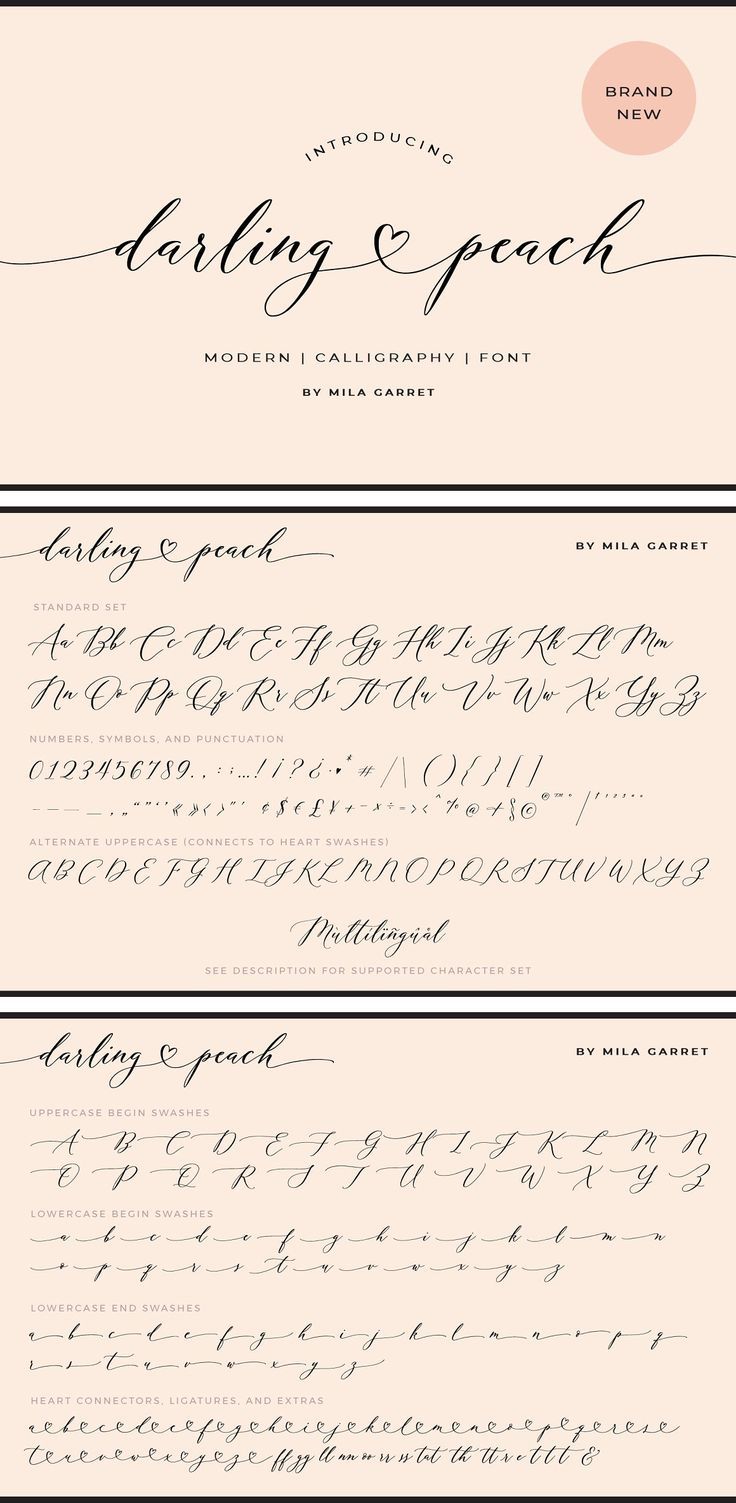 BRAND
NEW
INTRODUCING
darling peach
MODERN | CALLIGRAPHY | FONT
BY MILA GARRET
darling peach
BY MILA GARRET
STANDARD SET
Aa Bb Cc Dd Ee Ff Gg Hh Ii Jj Kk Ll Mm
Nn Oo Pp Qq Rr Ss Tt Uu Vv Ww Xx Yy Zz
NUMBERS, SYMBOLS, AND PUNCTUATION
0123456789., :;...!¡?¿·♥* # /\ (){}[]
¢$€£¥+-×÷=><^%@
ALTERNATE UPPERCASE (CONNECTS TO HEART SWASHES)
ABCDEFGHIJKLMNOPQRSTUVWXYZ
Mùltílïñgûål
SEE DESCRIPTION FOR SUPPORTED CHARACTER SET
darling peach
BY MILA GARRET
UPPERCASE BEGIN SWASHES
A B C D E F G H I J K L M N
O P Q R S T U V W X Y Z
LOWERCASE BEGIN SWASHES
a b c d e f g h i j k l m n
o p q r s t u v w x y z
LOWERCASE END SWASHES
a b c d e f g h i j k l m n o p q
r s t u v w x y z
HEART CONNECTORS, LIGATURES, AND EXTRAS
a b c d e f g h i j k l m n o p q r s
t u v w x y z ff gg ll nn oo rr ss tat th tt r e t t t &